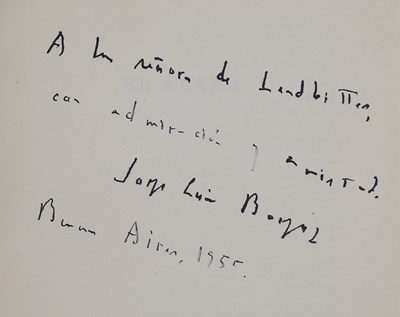 A la señora de Leadbitter,
con admiración y amistad.
Jorge Luis Borges
Buenos Aires, 1955.